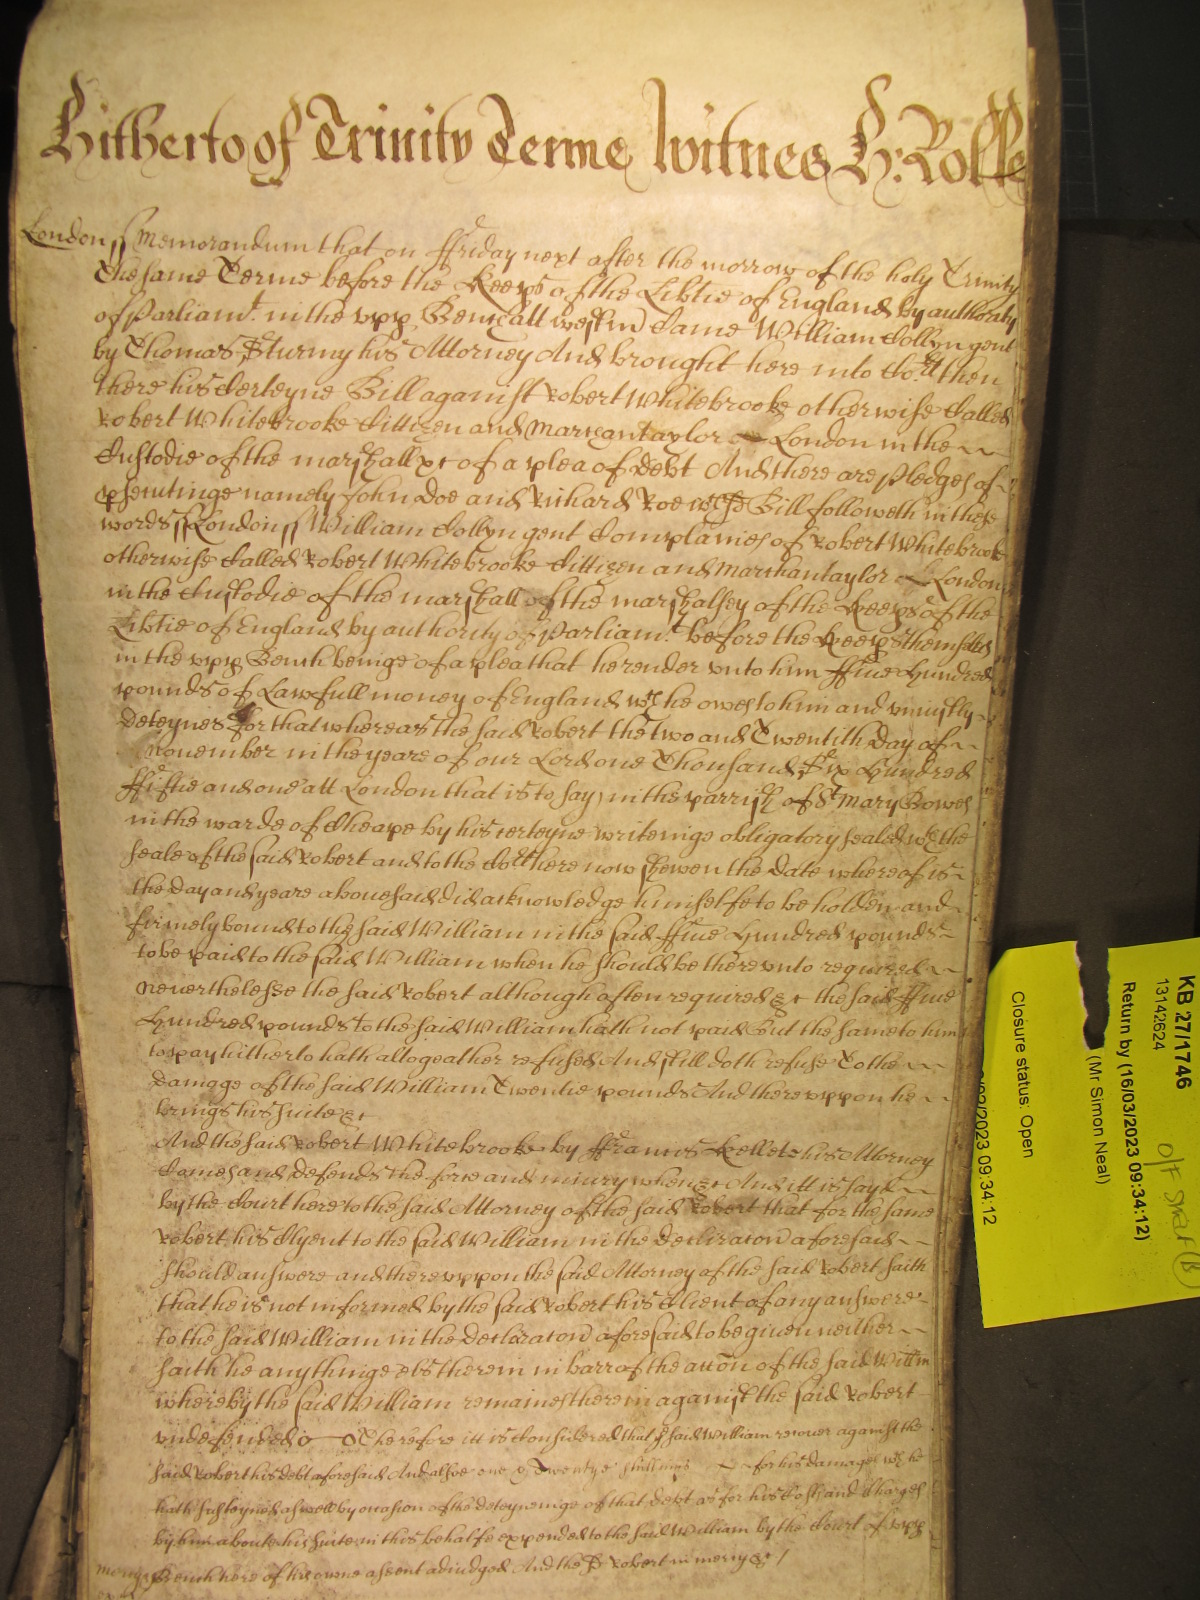 Hitherto of Trinity Terme Witnes H: Rolle
London ss Memorandum that on ffriday next after the morrow of the holy Trinity
the same Terme before the Keeps of the Libtie of England by authority
of Parliamt. in the vpp Bench att westm Came William Collyn gent
by Thomas Sturmy his Attorney And brought here into Cort then
there his Certeyne Bill against Robert Whitebrooke otherwise Called
Robert Whitebrooke Cittizen and Marchantaylor of London in the
Custodie of the marshall &c of a plea of debt And there are pledges of
psecutinge namely John Doe and Richard Roe wch sd Bill followeth in these
words ss London ss William Collyn gent Complaines of Robert Whitebrooke
otherwise Called Robert Whitebrooke Cittizen and Marchantaylor of London
in the Custodie of the marshall of the marshalsey of the Keeps of the
Libtie of England by authority of Parliamt. before the Keeps themselves
in the vpp Bench beinge of a plea that he render vnto him ffiue Hundred
pounds of Lawfull money of England wch he owes to him and vniustly
deteynes for that whereas the said Robert the Two and Twentith day of
Nouember in the yeare of our Lord one Thousand Six Hundred
ffiftie and one att London that is to say in the parrish of St Mary Bowes
in the warde of Cheape by his certeyne writeinge obligatory sealed wth the
seale of the said Robert and to the Cort here now shewen the date whereof is
the day and yeare abouesaid did acknowledge himselfe to be holden and
firmely bound to the said William in the said ffiue Hundred pounds
to be paid to the said William when he should be therevnto required
Neverthelesse the said Robert although often required &c the said ffiue
Hundred pounds to the said William hath not paid but the same to him
to pay hitherto hath altogeather refused And still doth refuse To the
damage of the said William Twentie pounds And therevppon he
brings his suite &c
And the said Robert Whitebrooke by ffrancis Kellet his Attorney
Comes and defends the force and iniury when &c And itt is sayd
by the Court here to the said Attorney of the said Robert that for the same
Robert his Clyent to the said William in the declaracon aforesaid
should answere and therevppon the said Attorney of the said Robert saith
that he is not informed by the said Robert his Client of any answere
to the said William in the declaracon aforesaid to be giuen neither
saith he anythinge els therein in barr of the accon of the said Willm
whereby the said William remaines therein against the said Robert
vndefended Therefore itt is Considered that ye said William recouer against the
said Robert his debt aforesaid And alsoe one & Twentye shillings for his damages wch he
hath susteyned aswell by occasion of the deteyneinge of that debt as for his Costs and Charges
by him aboute his suite in this behalfe expended to the said William by the Court of vpp
Bench here of his owne assent adiudged And the sd Robert in mercy &c
KB 27/1746
13142624
Return by (16/03/2023 09:34:12)
(Mr Simon Neal)
Closure status: Open
2023 09:34:12